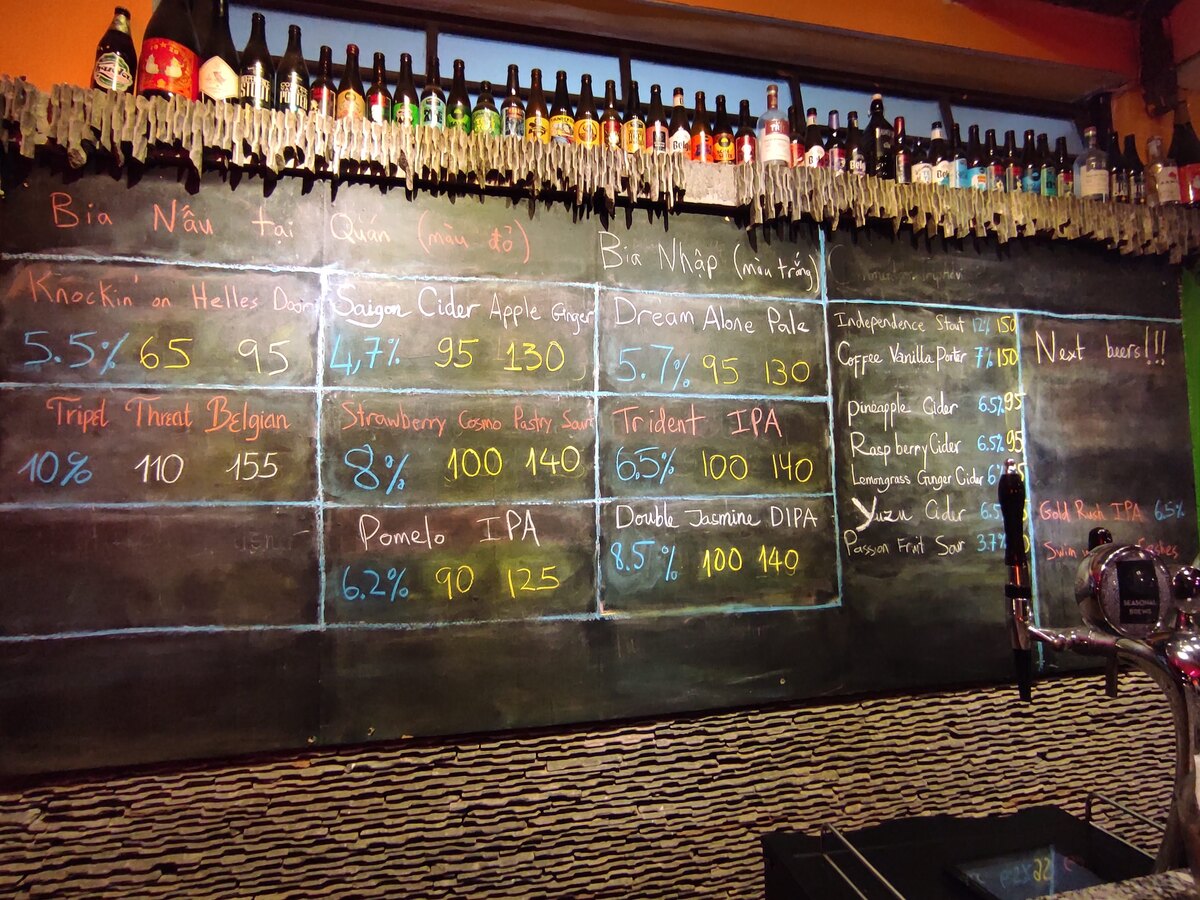 Bia Nấu tại Quán (màu đỏ)
Bia Nhập (màu trắng)
Knockin' on Helles Door
5.5% 65 95
Saigon Cider Apple Ginger
4,7% 95 130
Dream Alone Pale
5.7% 95 130
Tripel Threat Belgian
10% 110 155
Strawberry Cosmo Pastry Sour
8% 100 140
Trident IPA
6.5% 100 140
Pomelo IPA
6.2% 90 125
Double Jasmine DIPA
8.5% 100 140
Independence Stout 12% 150
Coffee Vanilla Porter 7% 150
Pineapple Cider 6.5% 95
Raspberry Cider 6.5% 95
Lemongrass Ginger Cider
Yuzu Cider
Passion Fruit Sour 3.7%
Next beers!!!
Gold Rush IPA 6.5%
Swim
SEASONAL
BREWS